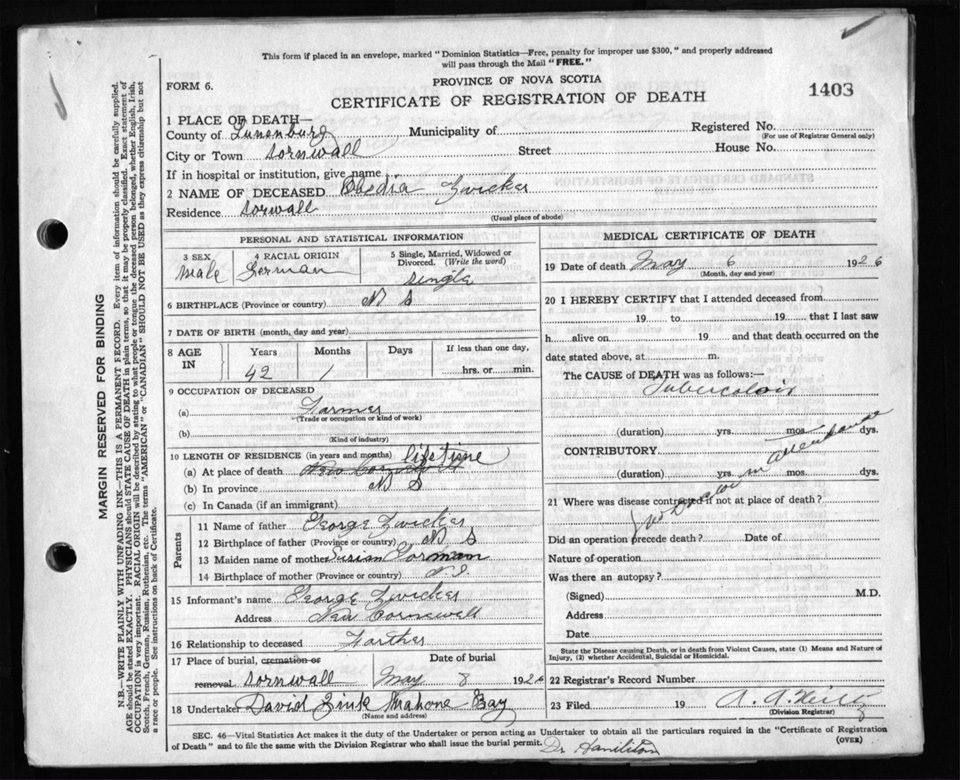 This form if placed in an envelope, marked "Dominion Statistics—Free, penalty for improper use $300," and properly addressed
will pass through the Mail "FREE."
FORM 6.
PROVINCE OF NOVA SCOTIA
CERTIFICATE OF REGISTRATION OF DEATH
1403
1 PLACE OF DEATH—
County of Lunenburg Municipality of Registered No.
(For use of Registrar General only)
City or Town Cornwall Street House No.
If in hospital or institution, give name
2 NAME OF DECEASED Obedia Zwicker
Residence Corwall
(Usual place of abode)
PERSONAL AND STATISTICAL INFORMATION
3 SEX 4 RACIAL ORIGIN 5 Single, Married, Widowed or Divorced. (Write the word)
Male German Single
6 BIRTHPLACE (Province or country) N S
7 DATE OF BIRTH (month, day and year)
8 AGE IN Years Months Days If less than one day,
42 1 hrs. or min.
9 OCCUPATION OF DECEASED
(a) Farmer
(Trade or occupation or kind of work)
(b)
(Kind of industry)
10 LENGTH OF RESIDENCE (in years and months) life time
(a) At place of death New Cornwall
(b) In province N S
(c) In Canada (if an immigrant)
Parents
11 Name of father George Zwicker
12 Birthplace of father (Province or country) N S
13 Maiden name of mother
14 Birthplace of mother (Province or country) N S
15 Informant's name George Zwicker
Address New Cornwell
16 Relationship to deceased Farther
17 Place of burial, cremation or removal Cornwall
Date of burial May 8 1926
18 Undertaker David Zink Mahone Bay
(Name and address)
MEDICAL CERTIFICATE OF DEATH
19 Date of death May 6 1926
(Month, day and year)
20 I HEREBY CERTIFY that I attended deceased from
19 to 19 that I last saw
h alive on 19 and that death occurred on the
date stated above, at m.
The CAUSE of DEATH was as follows:—
Tuberculois
(duration) yrs. mos. dys.
CONTRIBUTORY
(duration) yrs. mos. dys.
No Doctor in attendance
21 Where was disease contracted if not at place of death?
Did an operation precede death? Date of
Nature of operation
Was there an autopsy?
(Signed) M.D.
Address
Date
State the Disease causing Death, or in death from Violent Causes, state (1) Means and Nature of
Injury, (2) whether Accidental, Suicidal or Homicidal.
22 Registrar's Record Number
23 Filed 19
(Division Registrar)
SEC. 46—Vital Statistics Act makes it the duty of the Undertaker or person acting as Undertaker to obtain all the particulars required in the "Certificate of Registration
of Death" and to file the same with the Division Registrar who shall issue the burial permit.
(OVER)
Dr Hamilition
MARGIN RESERVED FOR BINDING
N.B.—WRITE PLAINLY WITH UNFADING INK—THIS IS A PERMANENT RECORD. Every item of information should be carefully supplied.
AGE should be stated EXACTLY. PHYSICIANS should STATE CAUSE OF DEATH in plain terms, so that it may be properly classified. Exact statement of
OCCUPATION is very important. RACIAL ORIGIN will be described by stating to what people or tongue the deceased person belonged, whether English, Irish,
Scotch, French, German, Russian, Ruthenian, etc. The terms "AMERICAN" or "CANADIAN" SHOULD NOT BE USED as they express citizenship but not
a race or people. See instructions on back of Certificate.